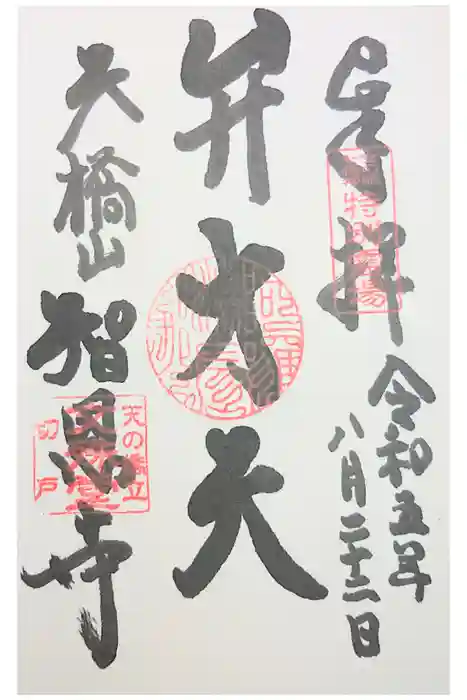 奉拝
令和五年
八月二十三日
弁才天
天橋山
智恩寺
特別霊場
天の橋立
切戸